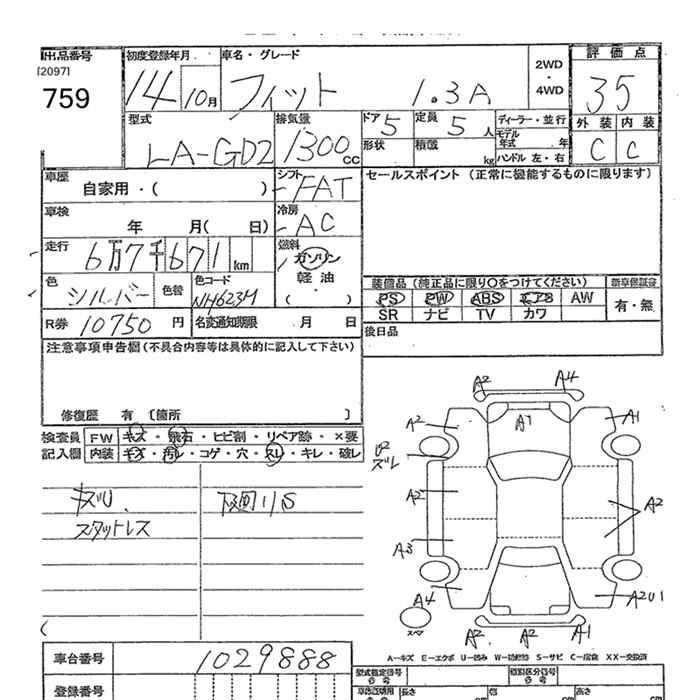 出品番号 初度登録年月 車名・グレード 評価点
[2097]
759 14 10月 フィット 1.3A 2WD・4WD 35
型式 排気量 ドア 5 定員 5人 ディーラー・並行 外装 内装
LA-GD2 1300cc 形状 積載 kg モデル年式 年 C C
ハンドル 左・右
車歴 自家用・( ) シフト FAT セールスポイント (正常に機能するものに限ります)
車検 年 月( 日) 冷房 AC
走行 6万7千671km 燃料 ガソリン
軽油
( ・ )
色 シルバー 色替 色コード NH623M 装備品 (純正品に限り○をつけてください) 新車保証書
PS PW ABS エアB AW 有・無
R券 10750円 名変通知期限 月 日 SR ナビ TV カワ
注意事項申告欄 (不具合内容等は具体的に記入して下さい) 後日品
修復歴 有 〔箇所 〕
検査員 FW キズ・飛石・ヒビ割・リペア跡・×要
記入欄 内装 キズ・汚レ・コゲ・穴・スレ・キレ・破レ
スタットレス
A2 A4
A2 A1 A1
U2
ズレ
A2 A2
A3
A4 A2U1
スペア A2 A2 A1
A-キズ E-エクボ U-凹み W-補修跡 S-サビ C-腐食 XX-交換済
車台番号 1029888 型式指定番号 類別区分番号
登録番号 長さ 幅 高さ